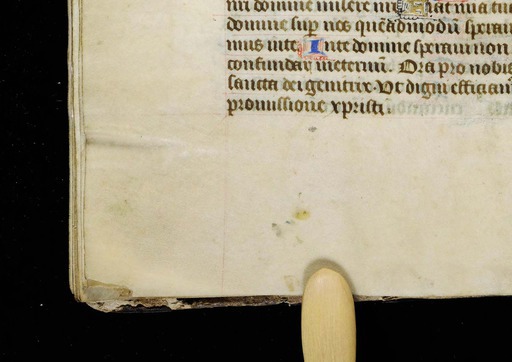 nri domine misere nri Fiat mia tua
domine sup nos quēadmodū speraui
mus in te In te domine speraui non
confundar in eternū. Ora pro nobis
sancta dei genitrix. Vt digni efficiam
promissione xpristi.